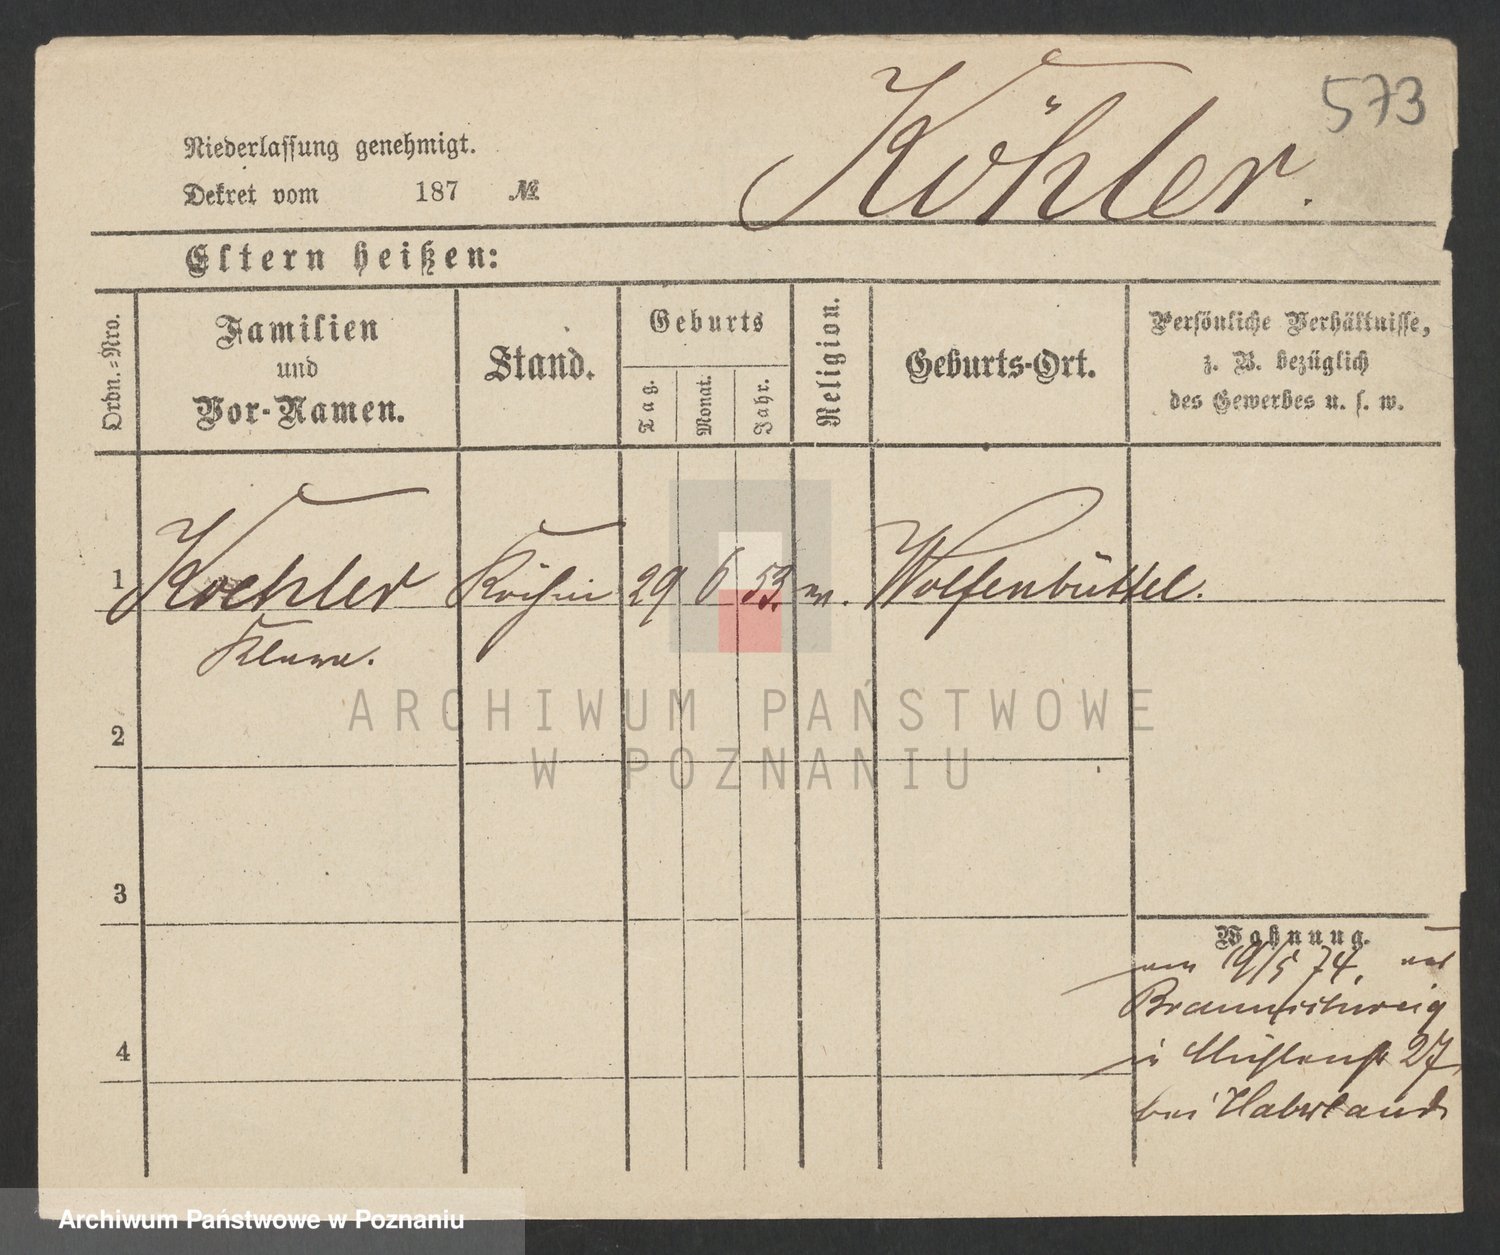 573
Köhler.
Niederlassung genehmigt.
Dekret vom 187 №
Eltern heißen:
Ordn.=Nro.
Familien
und
Vor-Namen.
Stand.
Geburts
Tag.
Monat.
Jahr.
Religion.
Geburts-Ort.
Persönliche Verhältnisse,
z. B. bezüglich
des Gewerbes u. s. w.
1 Koehler Köchin 29 6 53. Wolfenbüttel.
2
3
Wohnung.
19/5 74.
Braunschweig
4
in Mühlenstr 27
bei Haberland
ARCHIWUM PAŃSTWOWE
W POZNANIU
Archiwum Państwowe w Poznaniu